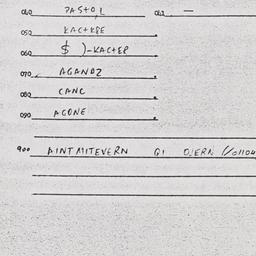 040 PASTOL 042 —
050 KACTKBE
060 $ )-KACTER
070 AGANDZ
080 CANC
090 AGONE
900 AINT MITEVERN GI OJERN